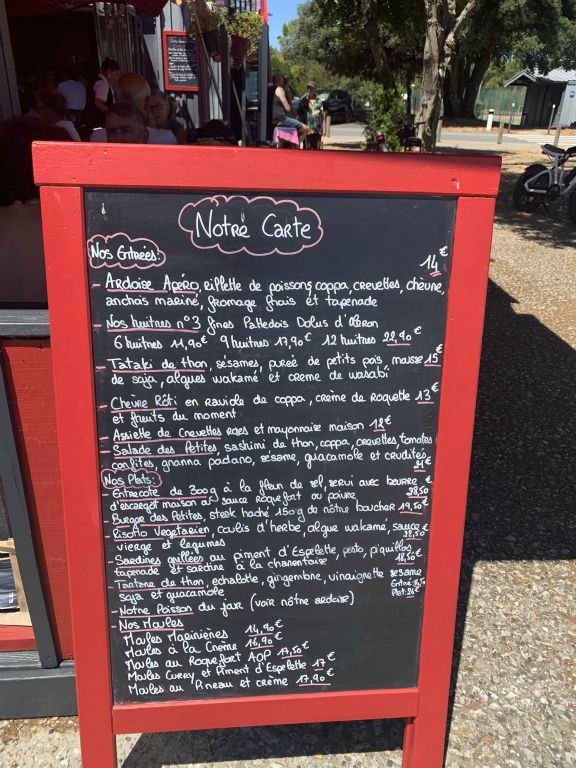 Notre Carte
Nos Entrées:
14€
- Ardoise Apéro, rillette de poissons, coppa, crevettes, chèvre,
anchois mariné, fromage frais et tapenade
- Nos huitres n°3 fines Pattedois Dolus d'Oléron
6 huitres 11,90€ 9 huitres 17,90€ 12 huitres 22,90€
- Tataki de thon, sésames, purée de petits pois, mousse 15€
de soja, algues wakamé et creme de wasabi
- Chèvre Rôti en raviole de coppa, crème de Roquette 13€
et fruits du moment
- Assiette de Crevettes roses et mayonnaise maison 12€
- Salade des Petites, sashimi de thon, coppa, crevettes, tomates
confites, granna padano, sésame, guacamole et crudités
21€
Nos Plats:
- Entrecote de 300g à la fleur de sel, servi avec beurre
d'escargot maison ou sauce Roquefort ou poivre 28,50€
- Burger des Petites, steak haché 150g de nôtre boucher 19,50€
- Risotto Végétarien, coulis d'herbe, algue wakamé, sauce
vierge et legumes 18,50€
- Sardines grillées au piment d'Espelette, pesto, piquillos,
tapenade et sardine à la charentaise 18,50€
- Tartare de thon, echalotte, gingembre, vinaigrette sesame
soja et guacamole Entrée: Plat:
- Notre Poisson du jour (voir nôtre ardoise)
- Nos Moules
Moules Marinières 14,90€
Moules à la Crème 16,90€
Moules au Roquefort AOP 17,50€
Moules Curry et Piment d'Espelette 17€
Moules au Pineau et crème 17,90€